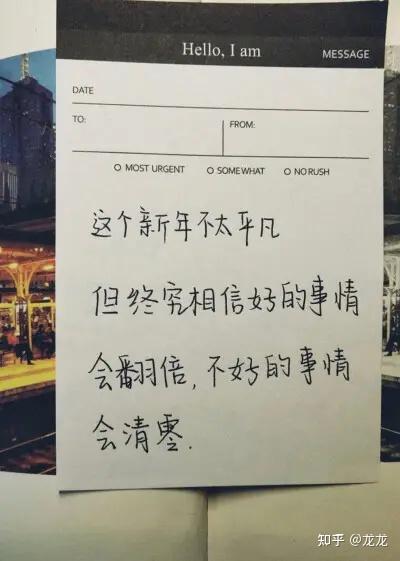 Hello, I am
MESSAGE
DATE
TO:
FROM:
O MOST URGENT O SOMEWHAT O NO RUSH
这个新年不太平凡
但终究相信好的事情
会翻倍,不好的事情
会清零.
知乎 @龙龙